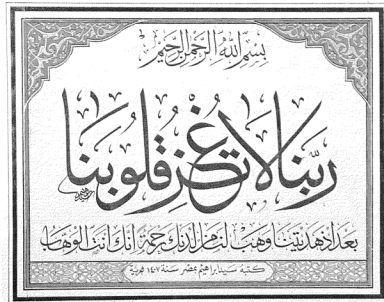 بسم الله الرحمن الرحيم
ربنا لا تزغ قلوبنا
بعد إذ هديتنا وهب لنا من لدنك رحمة إنك أنت الوهاب
كتبه سيد إبراهيم بمصر سنة